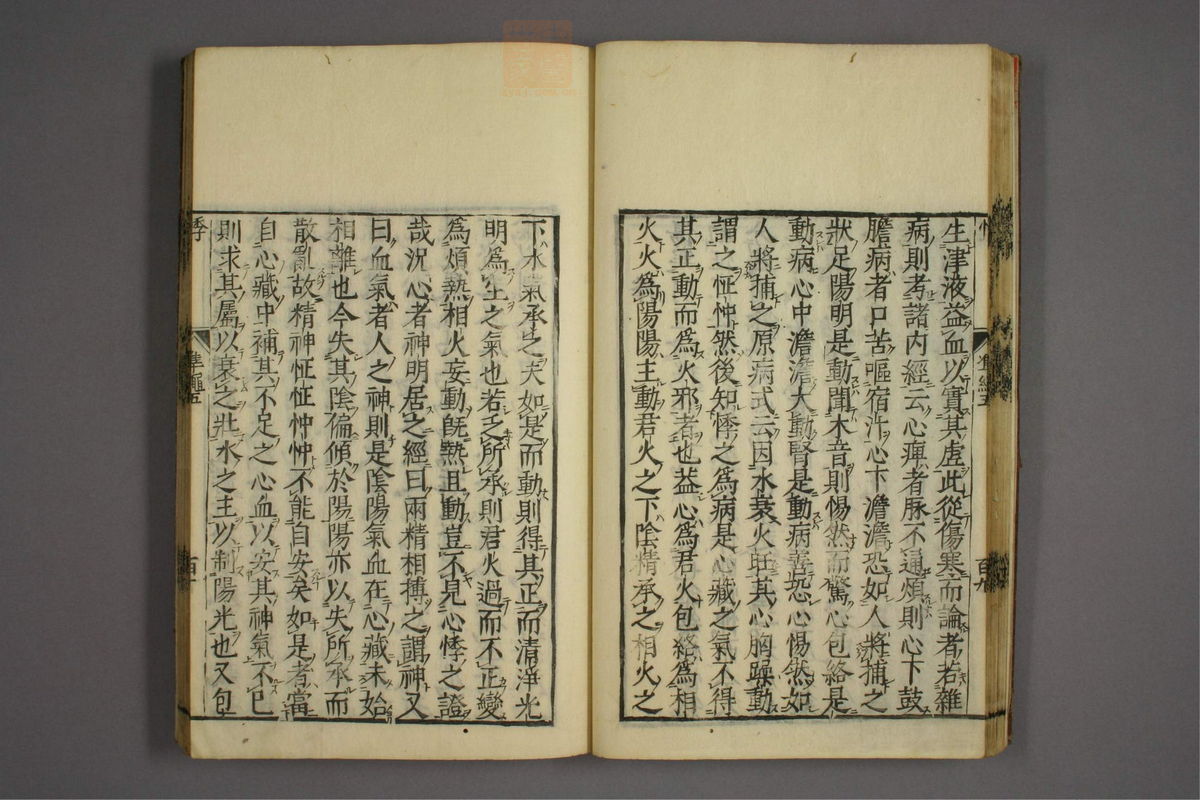 生津液益血以實其虛此從傷寒而論者若雜
病則考諸内經云心痺者脈不通煩則心下鼓
膽病者口苦嘔宿汁心下澹澹恐如人將捕之
狀足陽明是動聞木音則惕然而驚心包絡是
動病心中澹澹大動腎是動病善恐心惕然如
人將捕之原病式云因水衰火旺其心胸躁動
謂之怔忡然後知悸之爲病是心藏之氣不得
其正動而爲火邪者也葢心爲君火包絡爲相
火火爲陽陽主動君火之下陰精承之相火之
下水氣承之夫如是而動則得其正而清淨光
明爲生之氣也若乏所承則君火過而不正變
爲煩熱相火妄動旣熱且動豈不見心悸之證
哉況心者神明居之經曰兩精相搏之謂神又
曰血氣者人之神則是陰陽氣血在心藏未始
相離也今失其陰偏傾於陽陽亦以失所承而
散亂故精神怔怔忡忡不能自安矣如是者當
自心藏中補其不足之心血以安其神氣不已
則求其屬以衰之壯水之主以制陽光也又包
悸
準繩五